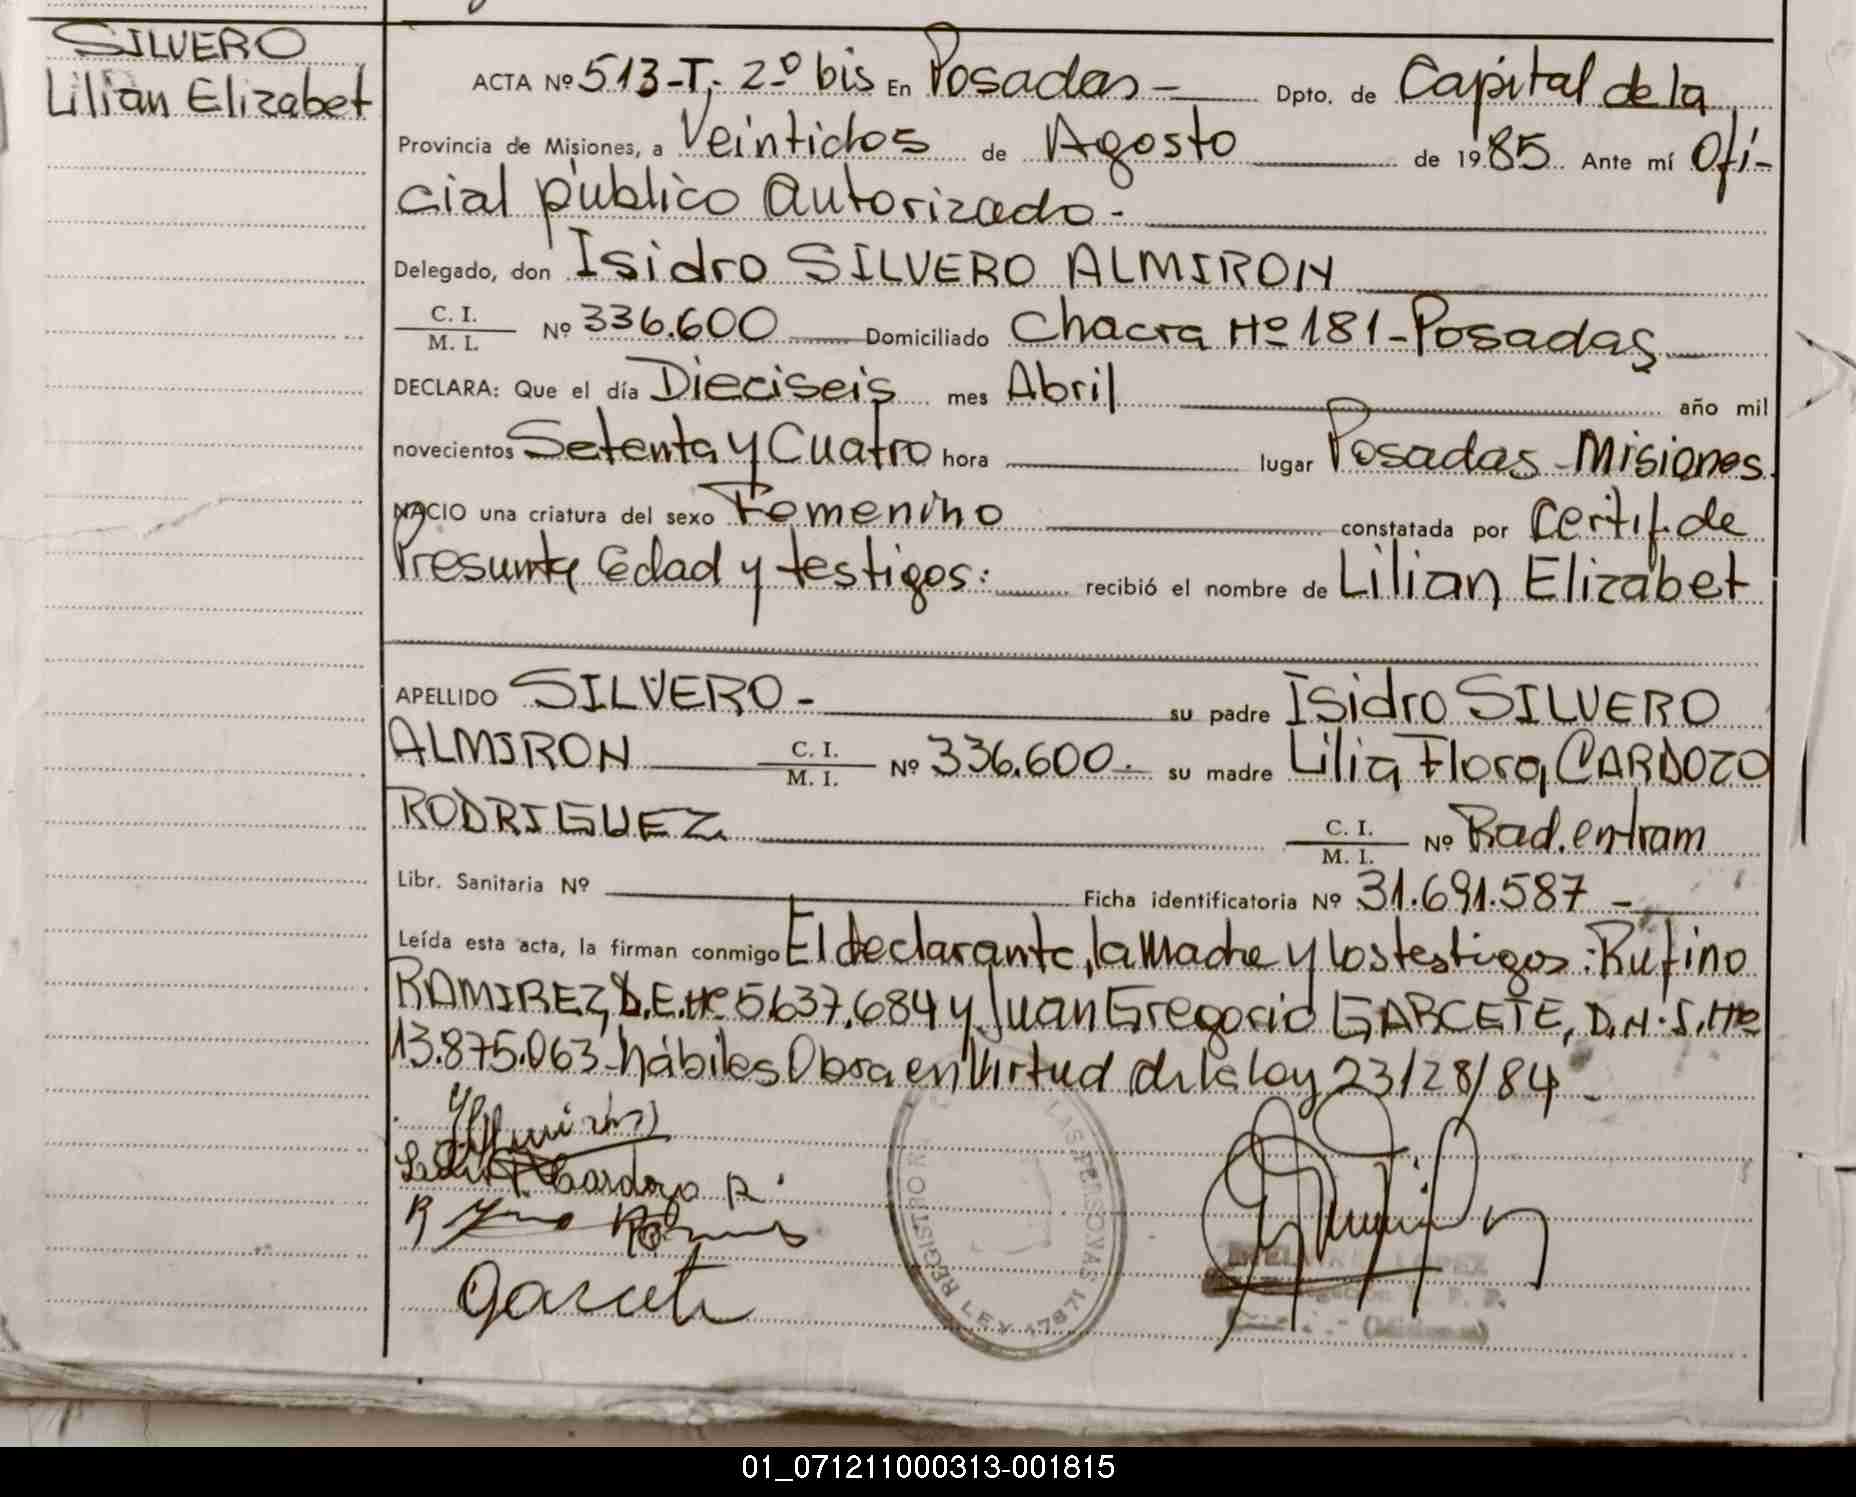 SILVERO
Lilian Elizabet
ACTA Nº 513-T, 2º bis En Posadas - Dpto. de Capital de la
Provincia de Misiones, a Veintidos de Agosto de 1985 Ante mí Ofi-
cial público Autorizado -
Delegado, don Isidro SILVERO ALMIRON
C. I.
M. I. Nº 336.600 Domiciliado Chacra Nº 181 - Posadas
DECLARA: Que el día Dieciseis mes Abril año mil
novecientos Setenta y Cuatro hora lugar Posadas - Misiones.
NACIO una criatura del sexo Femenino constatada por Certif. de
Presunta Edad y testigos: recibió el nombre de Lilian Elizabet
APELLIDO SILVERO - su padre Isidro SILVERO
ALMIRON C. I. M. I. Nº 336.600. su madre Lilia Flora CARDOZO
RODRIGUEZ C. I. M. I. Nº Rad. en tram
Libr. Sanitaria Nº Ficha identificatoria Nº 31.691.587 -
Leída esta acta, la firman conmigo El declarante, la Madre y los testigos: Rufino
RAMIREZ, D.E. Nº 5.637.684 y Juan Gregorio GARCETE, D.N.I. Nº
13.875.063 - hábiles Obra en Virtud de la Ley 23/28/84 -
Cardozo R.
Garcete
REGISTRO LAS PERSONAS LEY 17671
(Misiones)
01_071211000313-001815